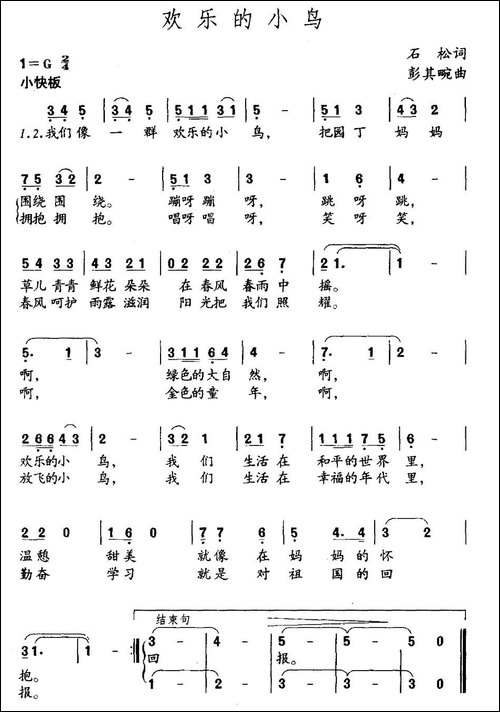 欢乐的小鸟
1=G 2/4
石松词
小快板
彭其畹曲
3 4 5 | 3 4 3 | 5 1 1 3 1 | 5 - | 5 1 3 | 5 1 3
1.2.我们像 一 群 欢乐的小 鸟, 把园 丁 妈 妈
7 5 3 2 | 2 - | 5 1 3 | 3 - | 1 6 | 4 -
围绕 围 绕。 蹦呀 蹦 呀, 跳 呀 跳,
拥抱 拥 抱。 唱呀 唱 呀, 笑 呀 笑,
5 4 3 3 | 4 3 2 1 | 0 2 2 1 | 2 6 7 | 2 1. | 1 -
草儿 青青 鲜花 朵朵 在 春风 春雨 中 摇。
春风 呵护 雨露 滋润 阳 光把 我们 照 耀。
5. 1 | 3 - | 3 1 1 6 4 | 4 - | 7. 1 | 2 -
啊, 绿色的大自 然, 啊,
啊, 金色的童 年, 啊,
2 6 6 4 3 | 2 - | 3 2 1 | 2 1 7 | 1 1 1 7 5 | 6 -
欢乐的小 鸟, 我 们 生活 在 和平的世 界 里,
放飞的小 鸟, 我 们 生活 在 幸福的年 代 里,
2 2 0 | 1 6 0 | 7 7 6 | 5 2 5 | 4. 4 | 3 2
温憩 甜美 就像 在 妈 妈 的 怀
勤奋 学习 就是 对 祖 国 的 回
结束句
3 1. | 1 - :|| 3 - 4 - | 5 - 5 - | 5 - 5 0 ||
回 报。
1 - 2 - | 3 - 3 - | 3 - 3 0 ||
抱。
报。